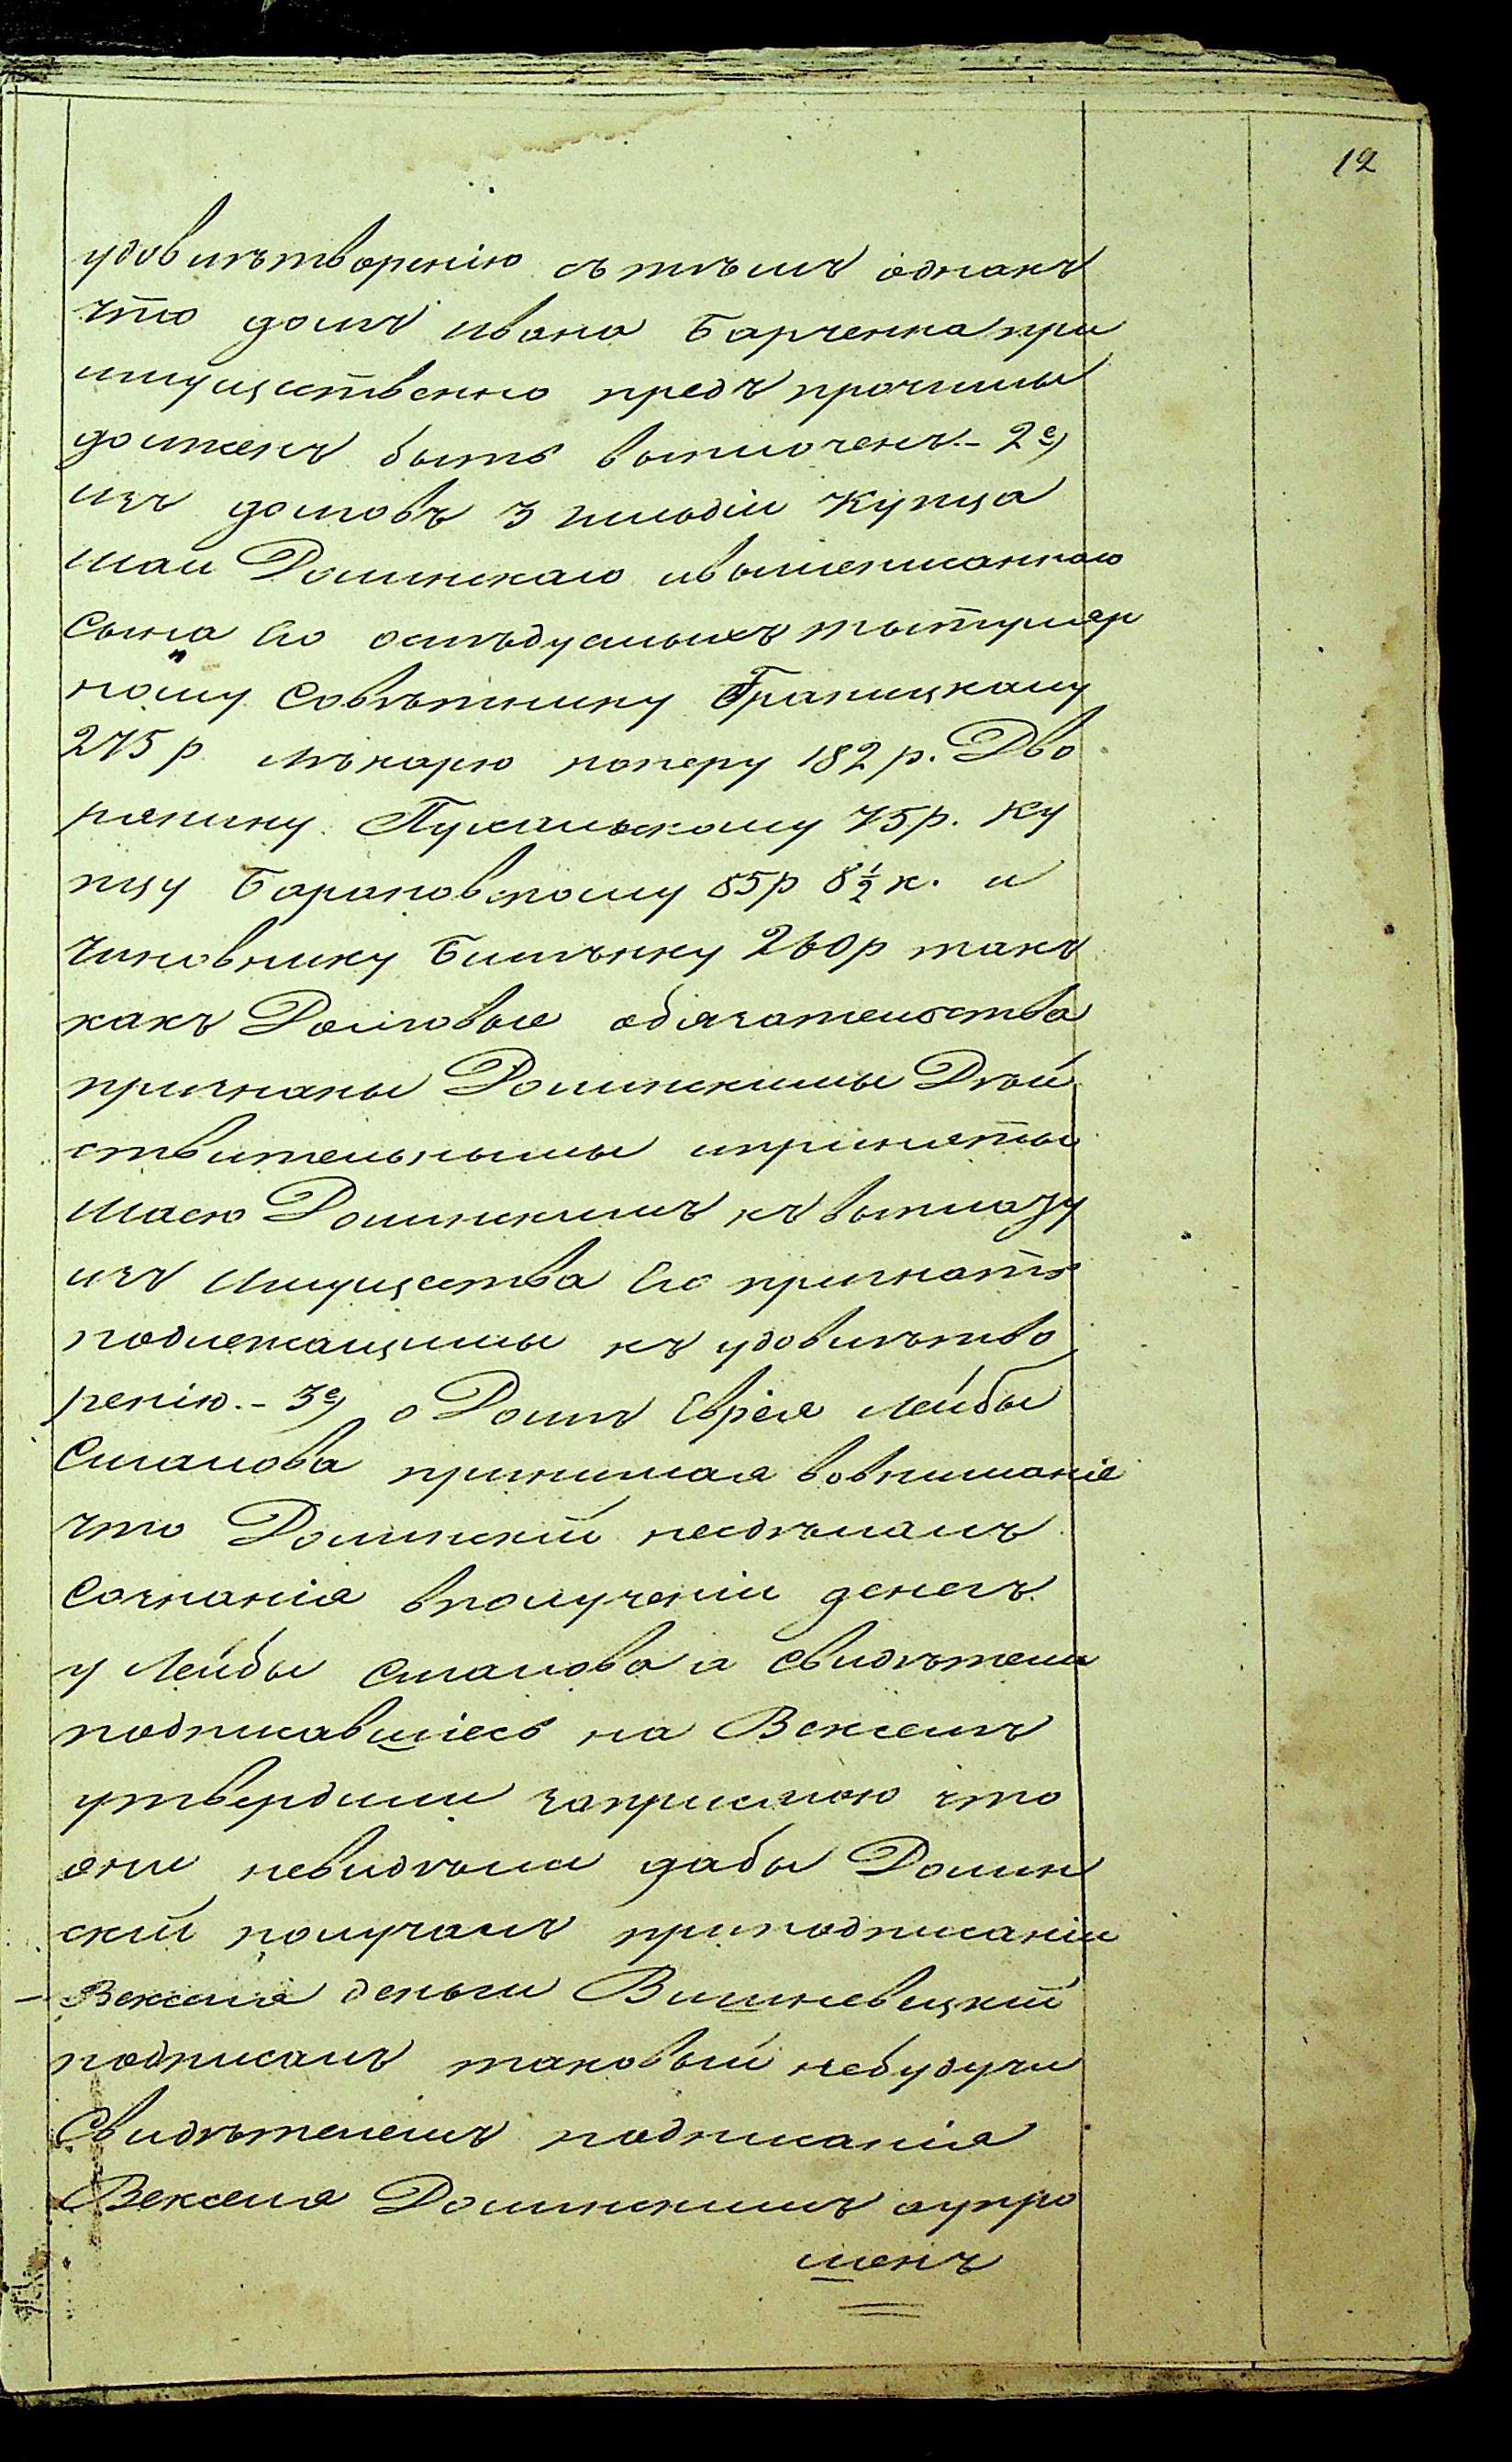 12
удовлѣтворенію съ тѣмъ однакъ
что долгъ Ивана Барченка при
имущественно предъ прочими
долженъ быть выплоченъ.- 2е)
изъ долговъ 3 гильдіи Купца
Шаи Долинскаго ивышеписаннаго
Сына Его ослѣдуемыхъ тытуляр
ному Совѣтнику Границкому
275 р. Лѣкарю коперу 182 р. Дво
рянину Пухальскому 75р. Ку
пцу Барановскому 85р 8½ к. и
Чиновнику Билѣнку 260р такъ
какъ Долговые обязательства
признаны Долинскимы Дѣй
ствительнымы ипринеты
Шаею Долинскимъ къ выплазу
изъ Имущества Его признать
подлежащимы къ удовилѣтво
ренію.- 3е) о Долгѣ Еврея Лейбы
Смалова принимая вовниманіе
что Долинскій несдѣлалъ
Сознанія вполученіи денегъ
у Лейбы Смалова а свидѣтели
подписавшіесь на Векселѣ
утвердили заприсягою что
они невидѣли дабы Долин
скій получалъ приподписаніи
Векселя деньги Вишневецкій
подписалъ таковый небудучи
Свидѣтелемъ подписанія
Векселя Долинскимъ аупро
шенъ